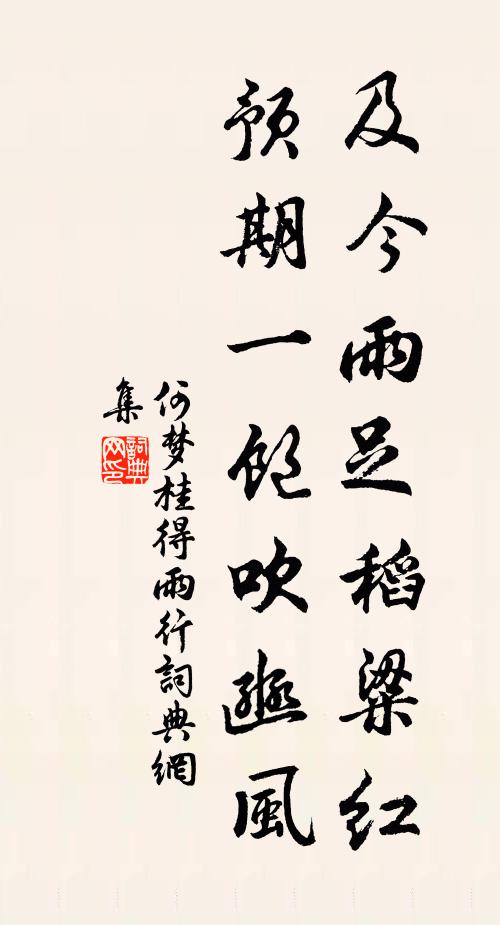 及今雨足稻粱红
預期一飽吹豳風
何梦桂得雨行詞典網
集
詞典网印